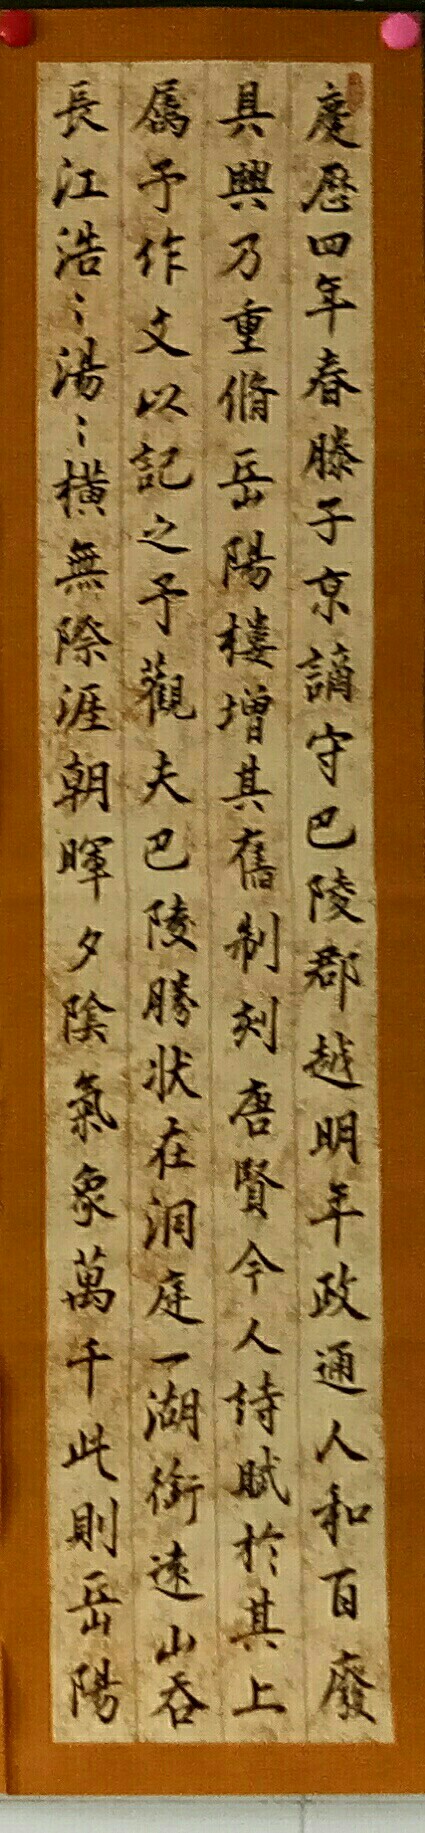 慶歷四年春滕子京謫守巴陵郡越明年政通人和百廢
具興乃重脩岳陽樓增其舊制刻唐賢今人詩賦於其上
屬予作文以記之予觀夫巴陵勝狀在洞庭一湖銜遠山吞
長江浩〻湯〻橫無際涯朝暉夕陰氣象萬千此則岳陽